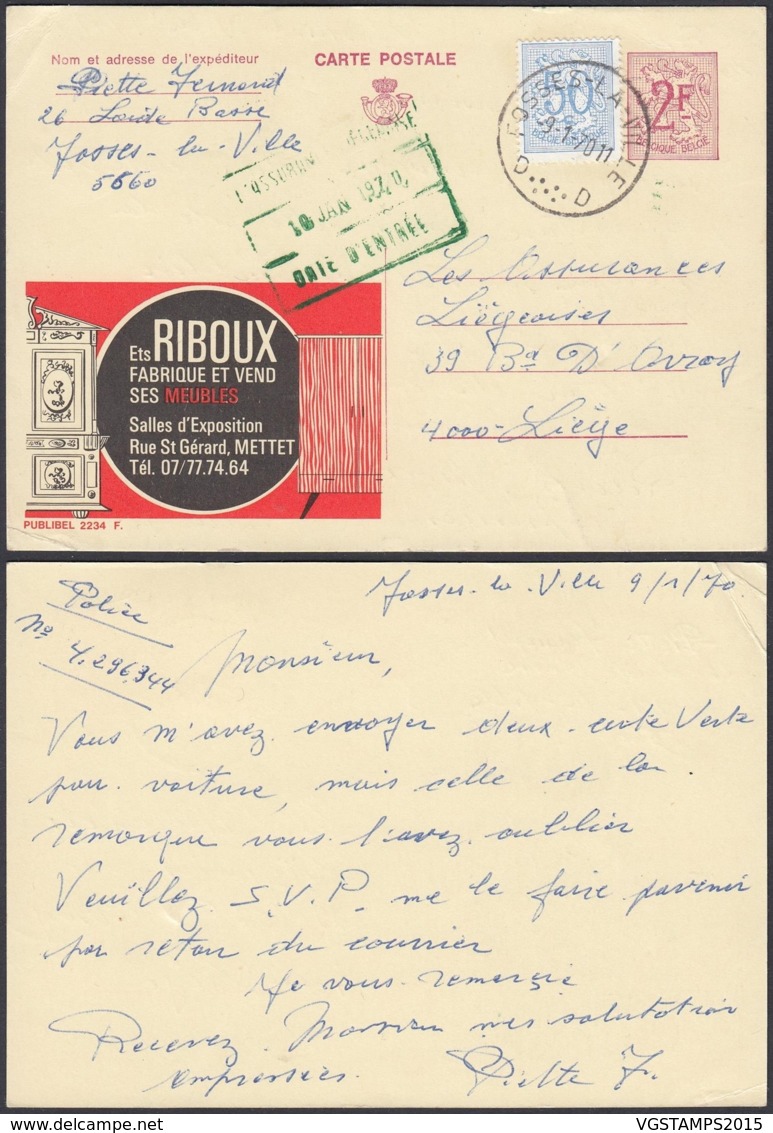 Nom et adresse de l'expéditeur
CARTE POSTALE
Piette Fernand
26 Loide Basse
Fosses-la-Ville
5660
50
BELGIE-BELGIQUE
2F
BELGIQUE BELGIË
FOSSES-LA-VILLE
-9-1-70 11
D D
10 JAN 1970
DATE D'ENTRÉE
Les Assurances
Liégeoises
39 Bd D'Avroy
4000-Liège
Ets RIBOUX
FABRIQUE ET VEND
SES MEUBLES
Salles d'Exposition
Rue St Gérard, METTET
Tél. 07/77.74.64
PUBLIBEL 2234 F.
Fosses-la-Ville 9/1/70
Police
No 4.296.344
Monsieur,
Vous m'avez envoyer deux carte Verte
pour voiture, mais celle de la
remorque vous l'avez oublier
Veuillez S.V.P. me le faire parvenir
par retour du courrier
Je vous remercie
Recevez Monsieur mes salutation
empressées.
Piette F.
VGSTAMPS2015